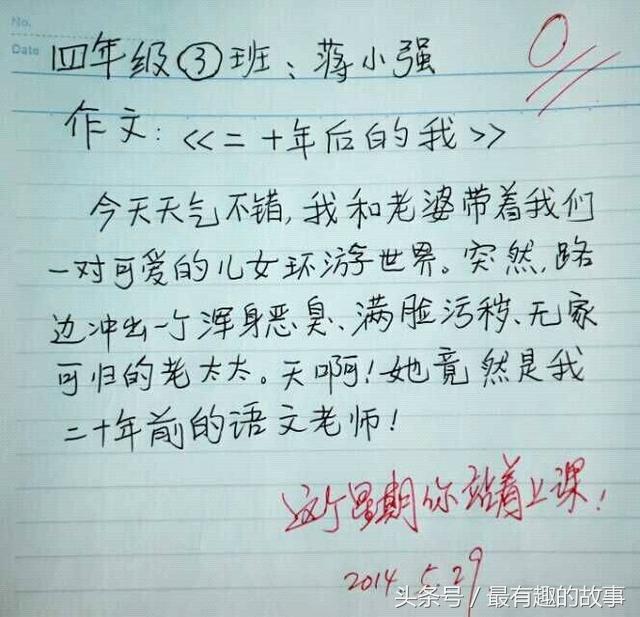 No.
Date
四年级③班：蒋小强
0
作文：《二十年后的我》
今天天气不错，我和老婆带着我们
一对可爱的儿女环游世界。突然，路
边冲出一个浑身恶臭、满脸污秽、无家
可归的老太太。天啊！她竟然是我
二十年前的语文老师！
这个星期你站着上课！
2014.5.29
头条号／最有趣的故事